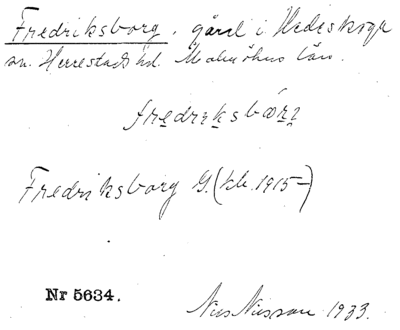 Fredriksborg. gård i Hedeskoga
sn. Herrestads hd. Malmöhus län.
fredriksbörj
Fredriksborg G. (kb. 1915–)
Nr 5634.
Nils Nilsson 1933.